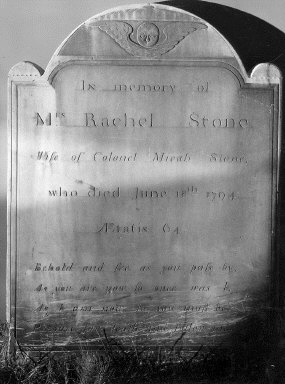 In memory of
Mrs Rachel Stone
Wife of Colonel Micah Stone,
who died June 18th 1794
Ætatis 64
Behold and see as you pass by,
As you are now so once was I,
As I am now so you must be